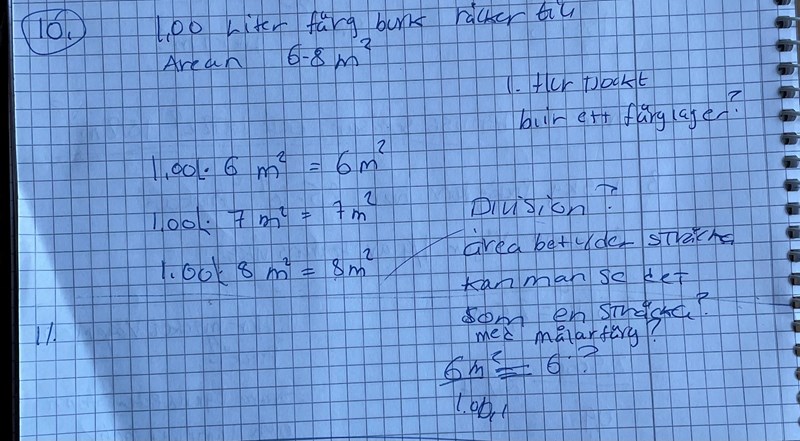 10.
1,00 Liter färg burk räcker till
Arean 6-8 m²
1. Hur tjockt
blir ett färglager?
1,00l · 6 m² = 6m²
1,00l · 7 m² = 7m²
1.00l · 8 m² = 8m²
Division?
area betyder sträcka
kan man se det
som en sträcka?
med målarfärg?
6m² = 6 ?
11.